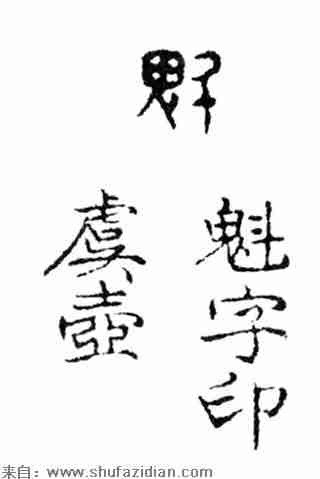 魁
魁字印
虞壺
来自：www.shufazidian.com